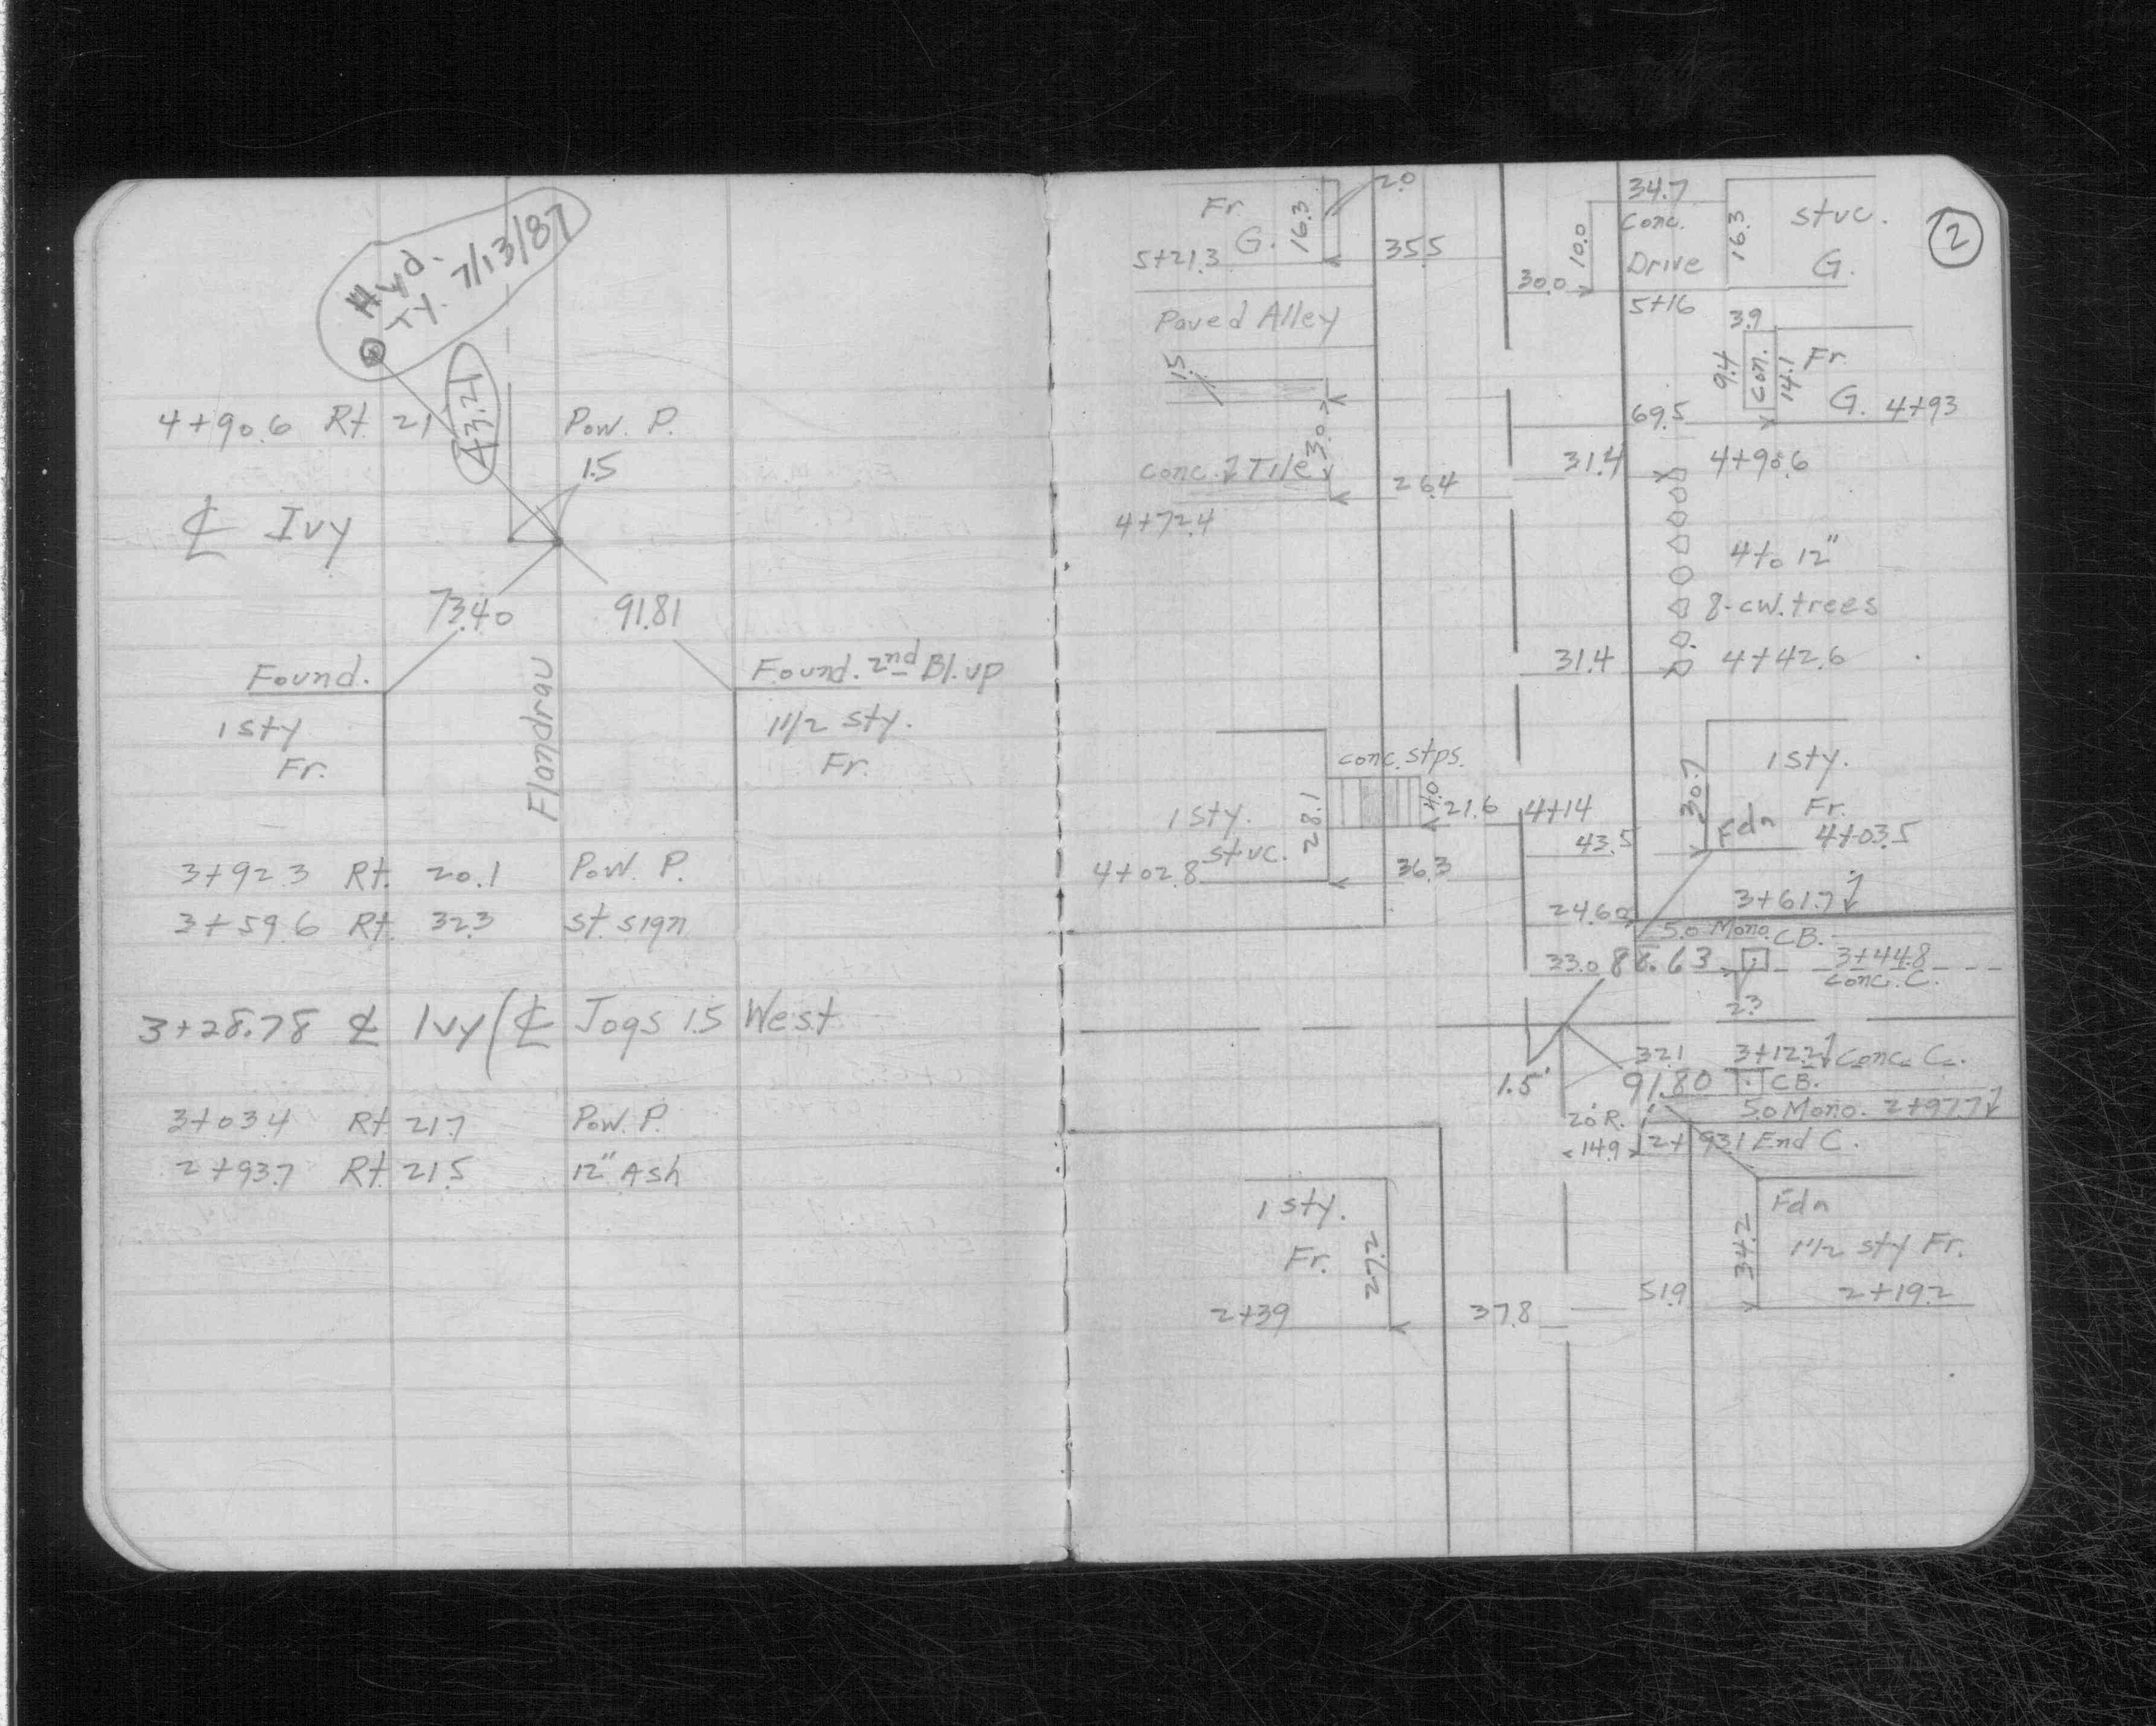 Hyd.
Ty. 7/13/87
43.21
4+90.6 Rt. 21 Pow. P.
1.5
℄ Ivy
73.40 91.81
Found. Found. 2nd Bl. up
1 sty 1 1/2 sty.
Fr. Fr.
Flandrau
3+92.3 Rt. 20.1 Pow. P.
3+59.6 Rt. 32.3 St. Sign
3+28.78 ℄ Ivy (℄ Jogs 1.5 West
3+03.4 Rt 21.7 Pow. P.
2+93.7 Rt. 21.5 12" Ash
2
Fr. 16.3 2.0
5+21.3 G. 35.5
34.7
Conc.
Drive
10.0
30.0
5+16
16.3 Stuc.
G.
Paved Alley
1.5
3.9
9.4 Con. 14.1 Fr.
69.5 G. 4+93
3.0
Conc. & Tile 26.4
4+72.4
31.4 4+90.6
4 to 12"
8-cw. trees
31.4 4+42.6
conc. stps.
4.0
1 sty. 28.1 21.6 4+14
Stuc.
4+02.8 36.3
30.7 1 sty.
Fr.
43.5 Fdn 4+03.5
3+61.7
24.60
5.0 Mono. CB.
33.0 88.63 3+44.8
Conc. C.
2.3
32.1 3+12.2 Conc. C.
1.5' 91.80 CB.
5.0 Mono. 2+97.7
20' R.
14.9 2+93.1 End C.
1 sty.
Fr. 26.2
2+39 37.8
Fdn
34.2 1 1/2 sty Fr.
51.9 2+19.2